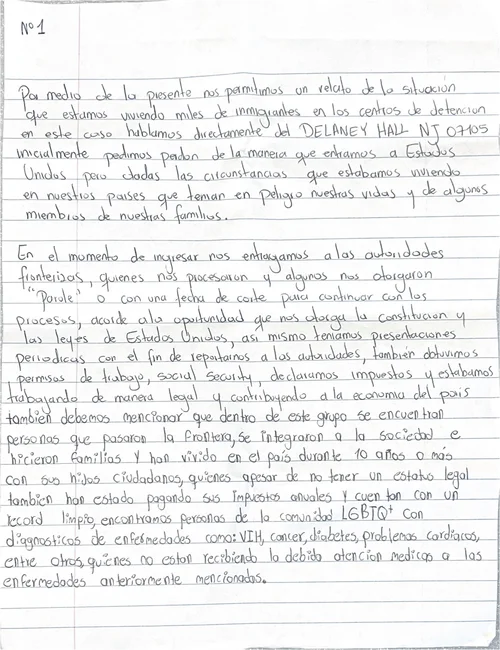 Nº 1
Por medio de la presente nos permitimos un relato de la situación
que estamos viviendo miles de inmigrantes en los centros de detencion
en este caso hablamos directamente del DELANEY HALL NJ 07105
inicialmente pedimos perdon de la manera que entramos a Estados
Unidos pero dadas las circunstancias que estabamos viviendo
en nuestros paises que tenian en peligro nuestras vidas y de algunos
miembros de nuestras familias.
En el momento de ingresar nos entragamos a las autoridades
fronterisas, quienes nos procesaron y algunos nos otorgaron
"Parole" o con una fecha de corte para continuar con los
procesos, acorde a la oportunidad que nos otorga la constitucion y
las leyes de Estados Unidos, asi mismo teniamos presentaciones
periodicas con el fin de reportarnos a las autoridades, tambien obtuvimos
permisos de trabajo, social security, declaramos impuestos y estabamos
trabajando de manera legal y contribuyendo a la economia del pais
tambien debemos mencionar que dentro de este grupo se encuentran
personas que pasaron la frontera, se integraron a la sociedad e
hicieron familias y han vivido en el país durante 10 años o más
con sus hijos ciudadanos, quienes apesar de no tener un estatus legal
tambien han estado pagando sus impuestos anuales y cuentan con un
record limpio, encontramos personas de la comunidad LGBTQ+ con
diagnosticos de enfemedades como: VIH, cancer, diabetes, problemas cardiacos,
entre otros, quienes no estan recibiendo la debida atencion medicas a las
enfermedades anteriormente mencionados.